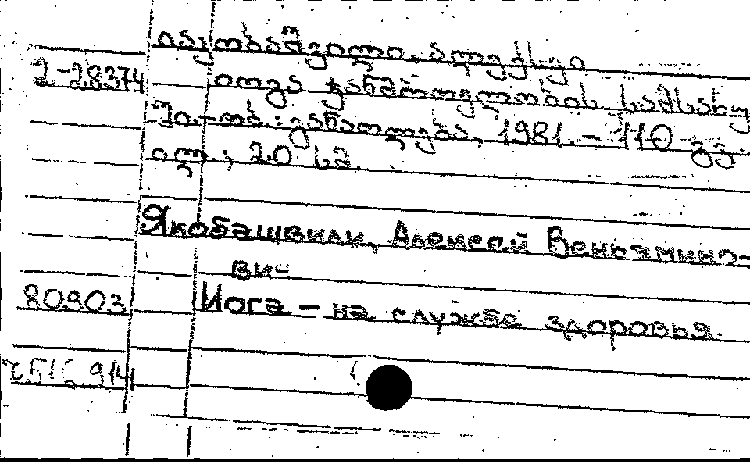 იაკობაშვილი, ალექსეი
2-28374 იოგა ჯანმრთელობის სამსახუ
თბ.: განათლება, 1981. - 110 გვ.
ილ.; 20 სმ.
Якобашвили, Алексей Веньямино-
ви-
80903 Иога - на службе здоровья.